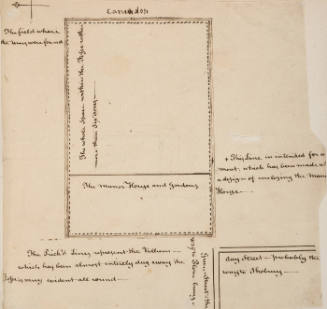 The field where
the Urns were found
The whole Space within the Fosse rather
more than Six Acres
The Manor House and Gardens
+ This Line is intended for a
moat, which has been made w
a design of enclosing the Man
House
The Prick'd Lines represent the Vallum
which has been almost entirely dug away the
Fosse very evident all round
Street
way to Stone
day Street probably the
way to